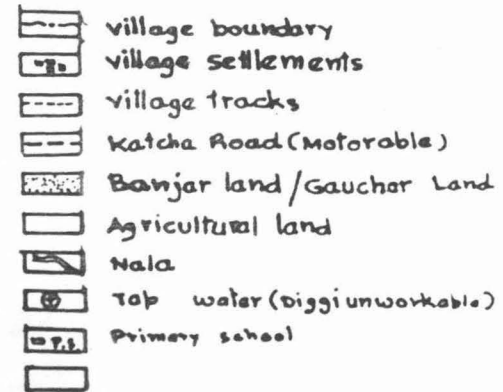 village boundary
village settlements
village tracks
Katcha Road (Motorable)
Banjar land / Gauchar Land
Agricultural land
Nala
Tap water (Diggi unworkable)
P.S. Primary school